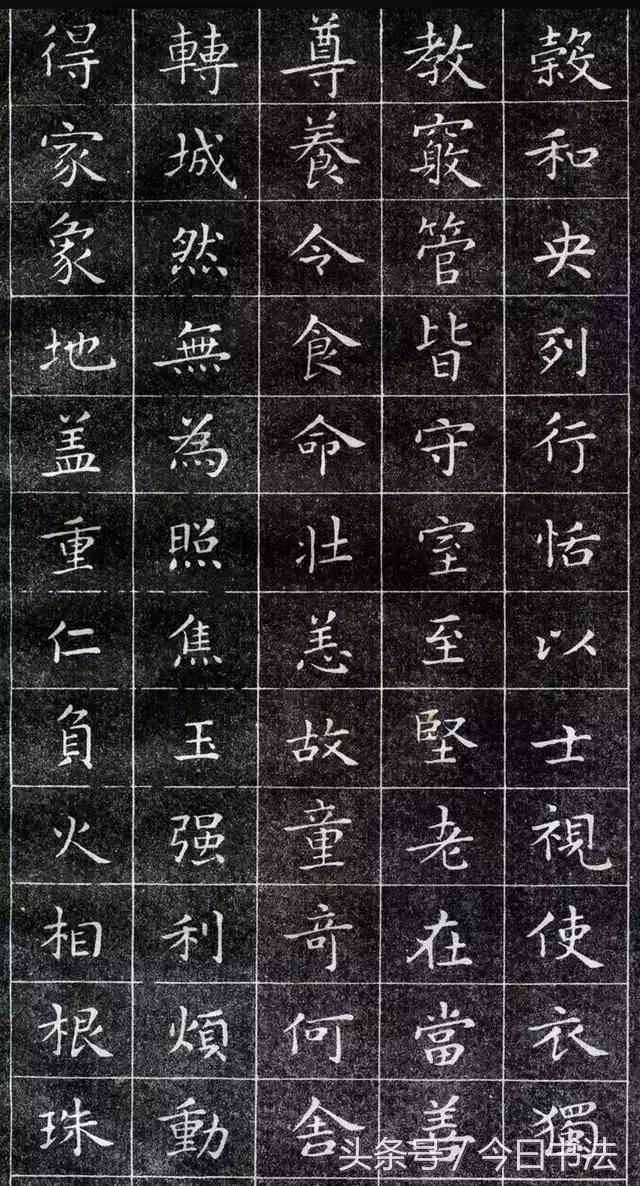 榖和央列行恬以士視使衣獨
教窮管皆守室至堅老在當善
尊養令食命壯恙故童奇何舍
轉城然無為照焦玉强利煩動
得家象地盖重仁負火相根珠
头条号 / 今日书法